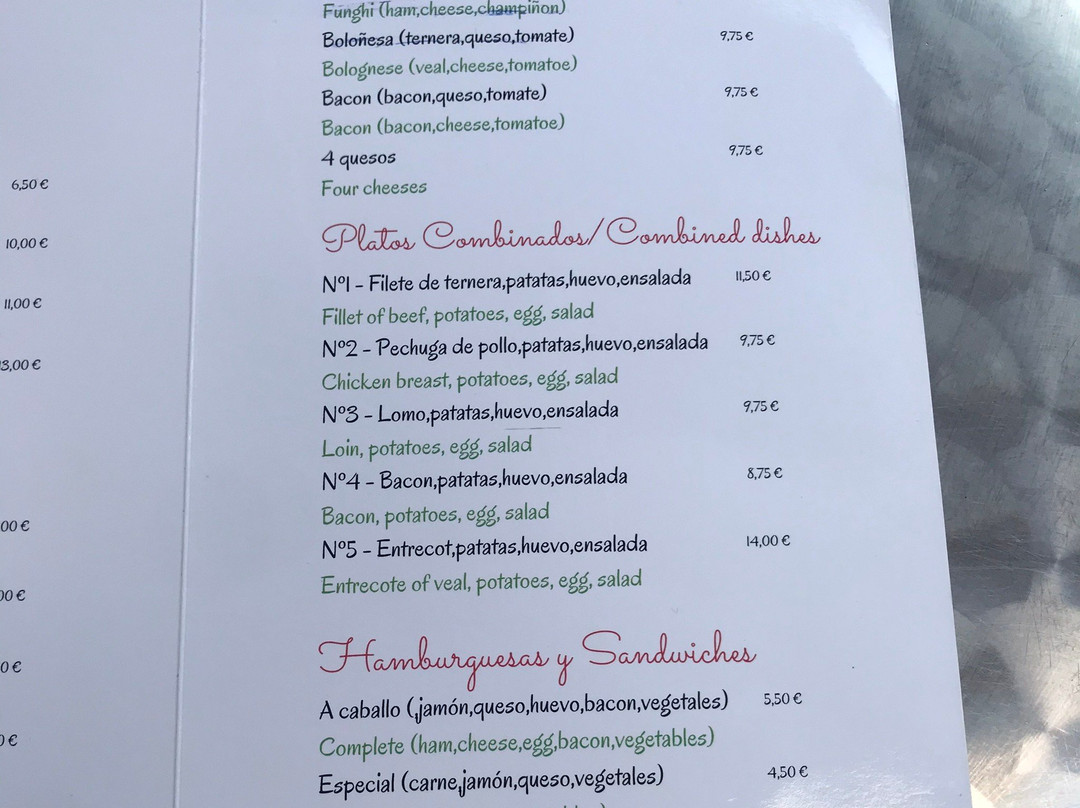 6,50 €
10,00 €
11,00 €
3,00 €
00 €
00 €
0 €
0 €
Funghi (ham,cheese,champiñon)
Boloñesa (ternera,queso,tomate) 9,75 €
Bolognese (veal,cheese,tomatoe)
Bacon (bacon,queso,tomate) 9,75 €
Bacon (bacon,cheese,tomatoe)
4 quesos 9,75 €
Four cheeses
Platos Combinados/Combined dishes
Nº1 - Filete de ternera,patatas,huevo,ensalada 11,50 €
Fillet of beef, potatoes, egg, salad
Nº2 - Pechuga de pollo,patatas,huevo,ensalada 9,75 €
Chicken breast, potatoes, egg, salad
Nº3 - Lomo,patatas,huevo,ensalada 9,75 €
Loin, potatoes, egg, salad
Nº4 - Bacon,patatas,huevo,ensalada 8,75 €
Bacon, potatoes, egg, salad
Nº5 - Entrecot,patatas,huevo,ensalada 14,00 €
Entrecote of veal, potatoes, egg, salad
Hamburguesas y Sandwiches
A caballo (,jamón,queso,huevo,bacon,vegetales) 5,50 €
Complete (ham,cheese,egg,bacon,vegetables)
Especial (carne,jamón,queso,vegetales) 4,50 €